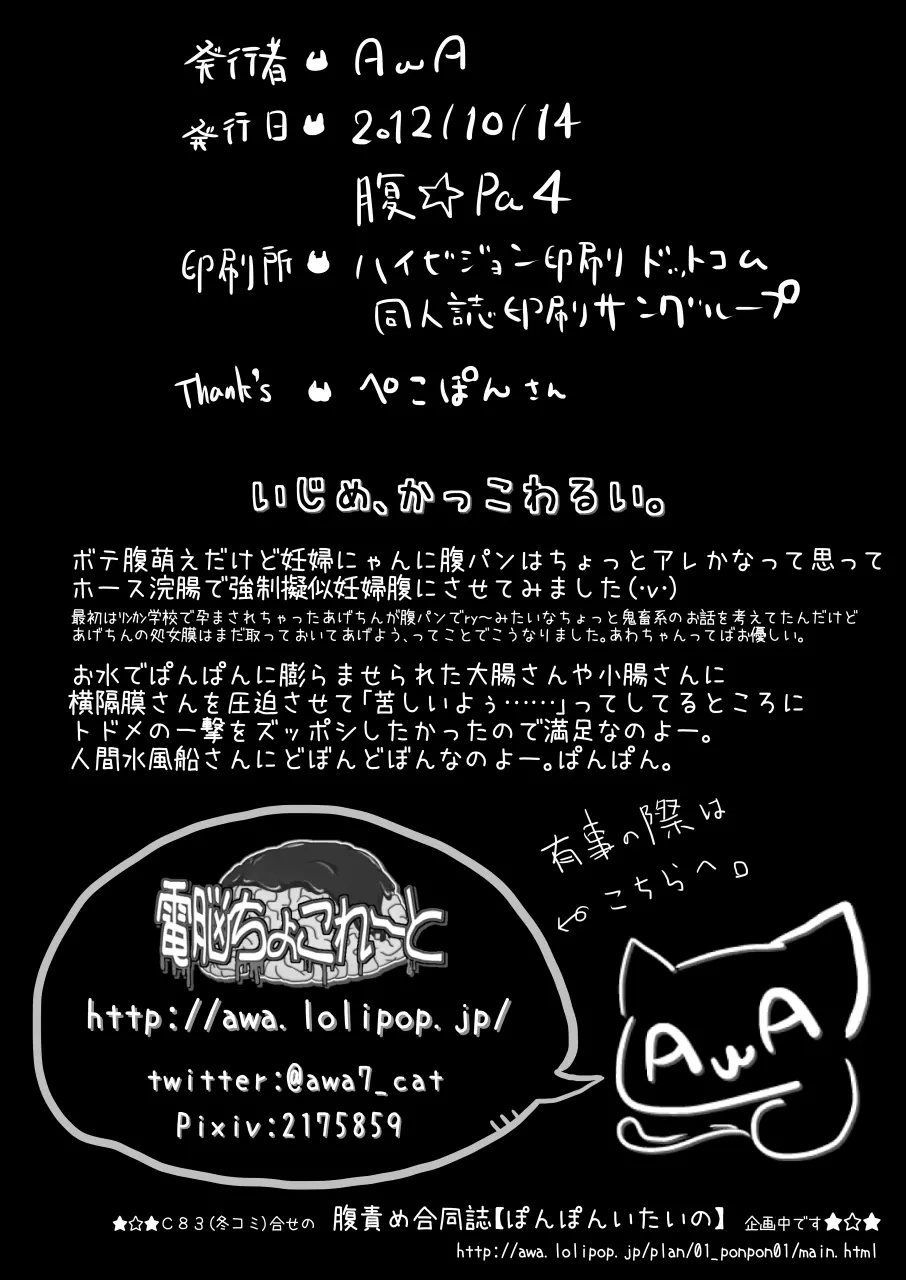 発行者 AwA
発行日 2012/10/14
腹☆Pa4
印刷所 ハイビジョン印刷ドットコム
同人誌印刷サングループ
Thank's ぺこぽんさん
いじめ、かっこわるい。
ボテ腹萌えだけど妊婦にゃんに腹パンはちょっとアレかなって思って
ホース浣腸で強制擬似妊婦腹にさせてみました(・v・)
最初はﾘﾝｶﾝ学校で孕まされちゃったあげちんが腹パンでry～みたいなちょっと鬼畜系のお話を考えてたんだけど
あげちんの処女膜はまだ取っておいてあげよう、ってことでこうなりました。あわちゃんってばお優しい。
お水でぱんぱんに膨らませられた大腸さんや小腸さんに
横隔膜さんを圧迫させて「苦しいよぅ……」ってしてるところに
トドメの一撃をズッポシしたかったので満足なのよー。
人間水風船さんにどぼんどぼんなのよー。ぱんぱん。
有事の際は
こちらへ。
電脳ちょこれ～と
http://awa.lolipop.jp/
twitter:@awa7_cat
Pixiv:2175859
AwA
★☆★C83(冬コミ)合せの 腹責め合同誌【ぽんぽんいたいの】 企画中です★☆★
http://awa.lolipop.jp/plan/01_ponpon01/main.html